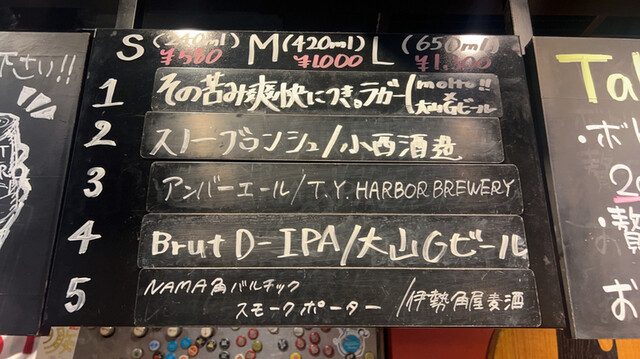 S (240ml) M (420ml) L (650ml)
¥580 ¥1000 ¥1,300
1 その苦み爽快につき。ラガー/molto!!×大山Gビール
2 スノーブランシュ/小西酒造
3 アンバーエール/T.Y. HARBOR BREWERY
4 Brut D-IPA/大山Gビール
5 NAMA角バルチック
スモークポーター/伊勢角屋麦酒
下さい!!
Ta
・ボリ
・贅
お